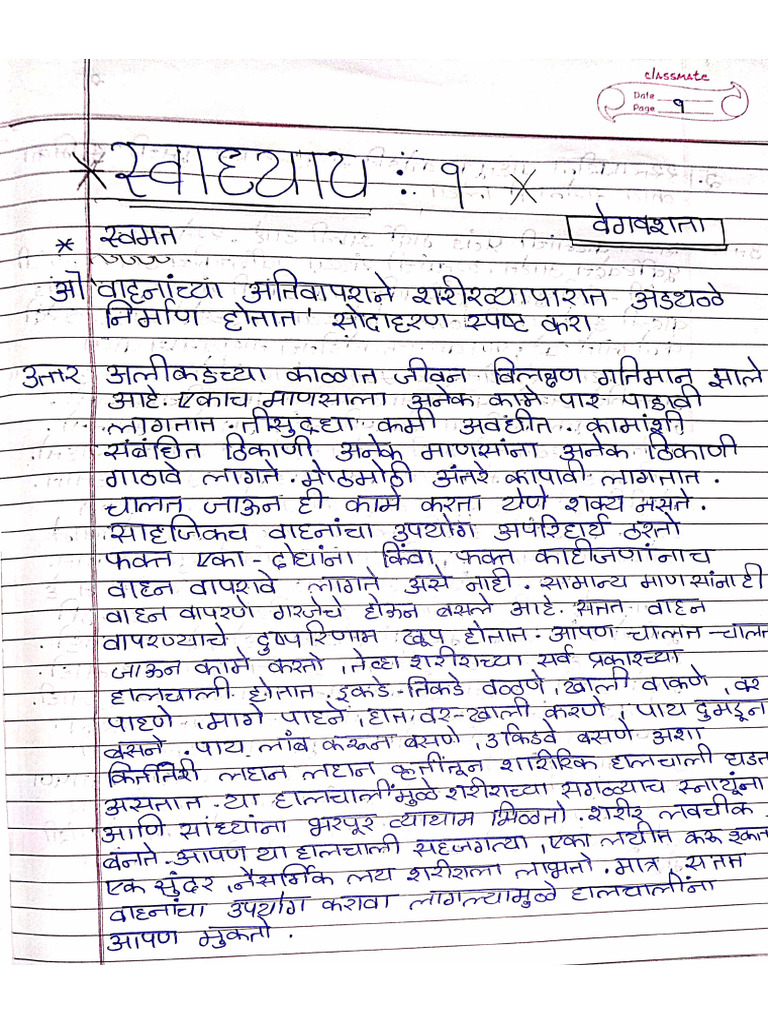 classmate
Date
Page १
* स्वाध्याय : १ ×
वेगवशता
* स्वमत
ओ 'वाहनांच्या अतिवापराने शरीरव्यापारात अडथळे
निर्माण होतात' सोदाहरण स्पष्ट करा
उत्तर अलीकडच्या काळात जीवन विलक्षण गतिमान झाले
आहे. एकाच माणसाला अनेक कामे पार पाडावी
लागतात. तीसुद्धा कमी अवधीत. कामांशी
संबंधित ठिकाणी अनेक माणसांना अनेक ठिकाणी
गाठावे लागते. मोठमोठी अंतरे कापावी लागतात.
चालत जाऊन ही कामे करता येणे शक्य नसते.
साहजिकच वाहनांचा उपयोग अपरिहार्य ठरतो
फक्त एका-दोघांना किंवा फक्त काहीजणांनाच
वाहन वापरावे लागते असे नाही. सामान्य माणसांनाही
वाहन वापरणे गरजेचे होऊन बसले आहे. सतत वाहन
वापरण्याचे दुष्परिणाम खूप होतात. आपण चालत-चालत
जाऊन कामे करतो, तेव्हा शरीराच्या सर्व प्रकारच्या
हालचाली होतात. इकडे-तिकडे वळणे, खाली वाकणे, वर
पाहणे, मागे पाहने, हात वर-खाली करणे, पाय दुमडून
बसने. पाय लांब करून बसणे, उकिडवे बसणे अशा
कितीतरी लहान लहान कृतींतून शारीरिक हालचाली घडत
असतात. या हालचालींमुळे शरीराच्या सगळ्याच स्नायूंना
आणि सांध्यांना भरपूर व्यायाम मिळतो. शरीर लवचीक
बनते. आपण या हालचाली सहजगत्या, एका लयीत करू शकत
एक सुंदर, नैसर्गिक लय शरीराला लाभतो. मात्र, सतत
वाहनांचा उपयोग करावा लागल्यामुळे हालचालींना
आपण मुकतो.